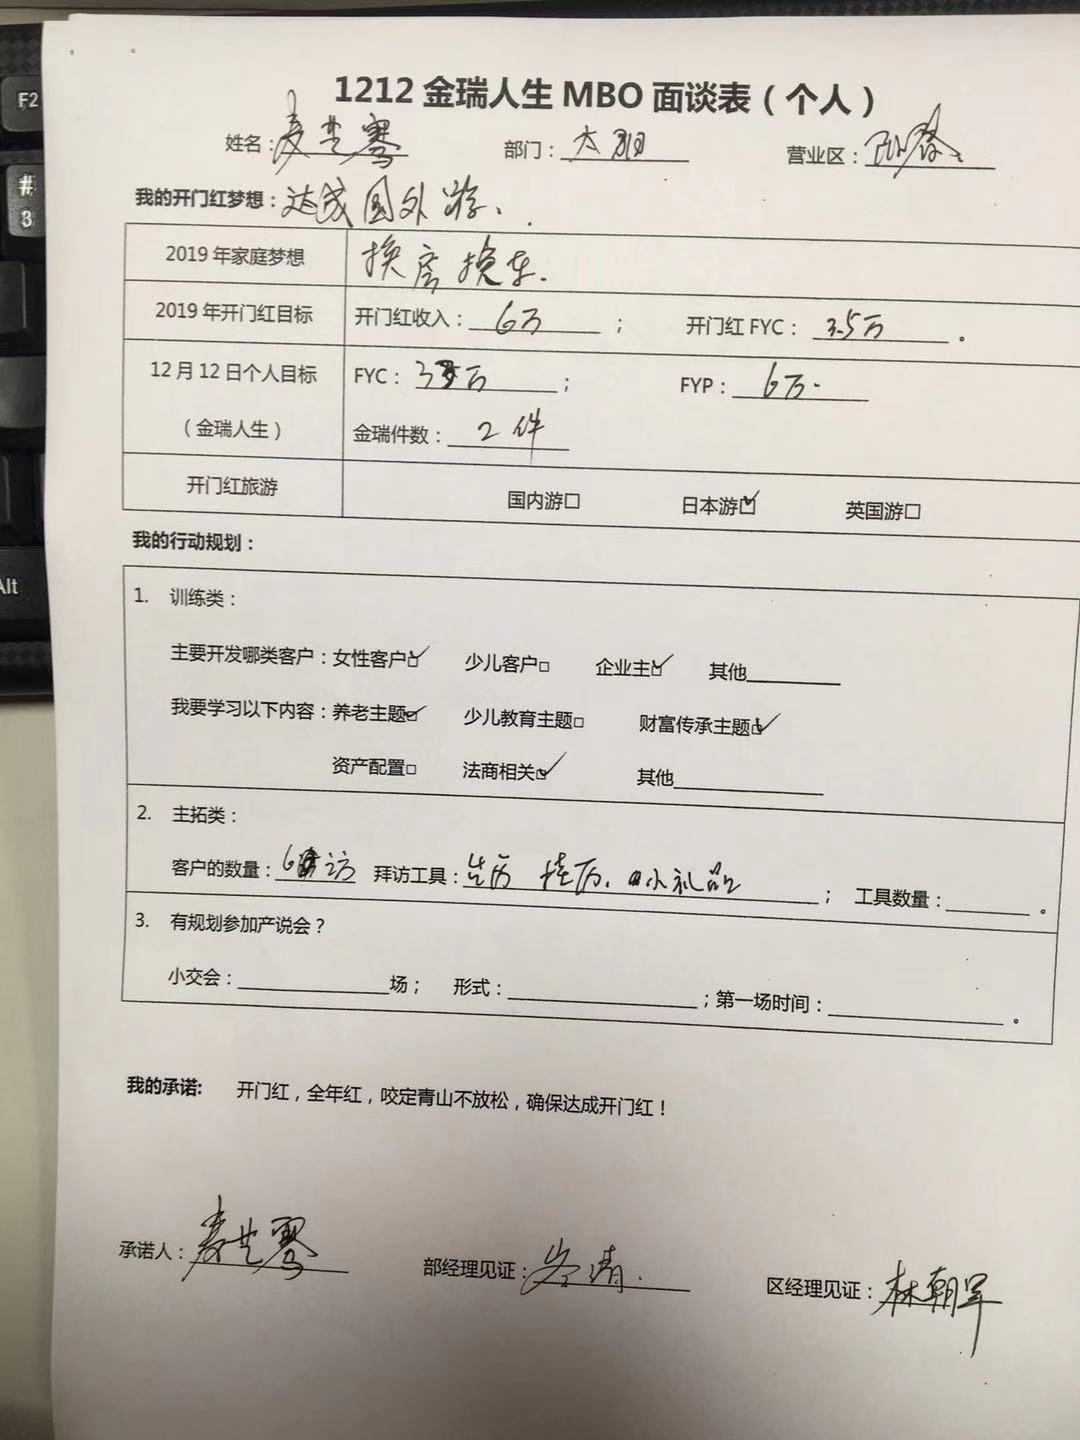 1212 金瑞人生 MBO 面谈表（个人）
姓名： 部门： 营业区：
我的开门红梦想：达成国外游、
2019 年家庭梦想 换房换车.
2019 年开门红目标 开门红收入：6万； 开门红 FYC：3.5万。
12 月 12 日个人目标 FYC： ； FYP：6万.
（金瑞人生） 金瑞件数：2件
开门红旅游 国内游□ 日本游☑ 英国游□
我的行动规划：
1. 训练类：
主要开发哪类客户：女性客户☑ 少儿客户□ 企业主☑ 其他
我要学习以下内容：养老主题☑ 少儿教育主题□ 财富传承主题☑
资产配置□ 法商相关☑ 其他
2. 主拓类：
客户的数量： 访 拜访工具： 挂历、小礼品； 工具数量： 。
3. 有规划参加产说会？
小交会： 场； 形式： ；第一场时间： 。
我的承诺: 开门红，全年红，咬定青山不放松，确保达成开门红！
承诺人： 部经理见证： 区经理见证：林朝军
F2
#
3
Alt